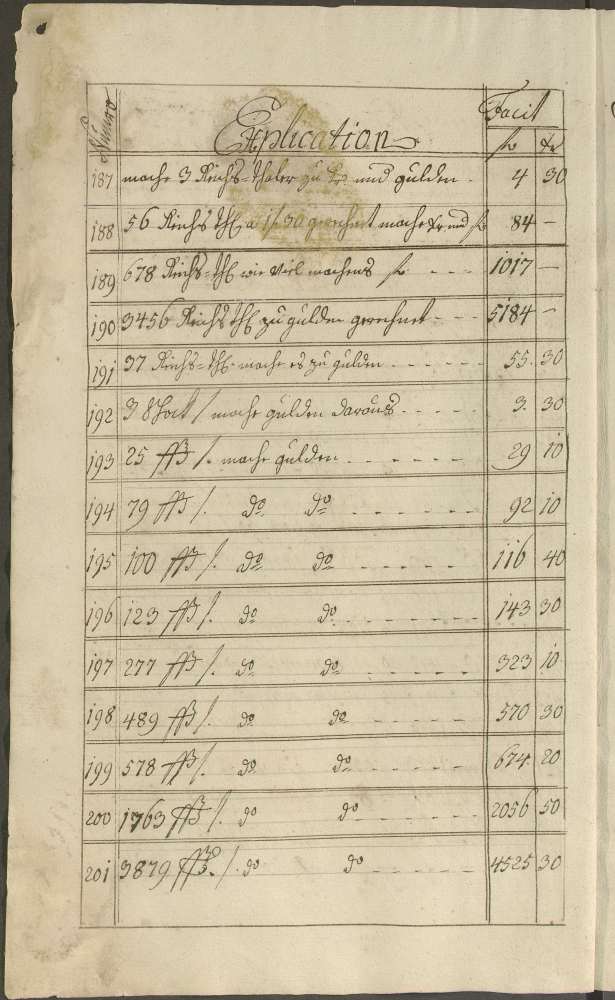 Numero
Explication
Facit
fl xr
187 mache 3 Reichs-thaler zu xr und gulden - 4 30
188 56 Reichs thl a 1 fl 30 gerechnet mache xr und fl 84 -
189 678 Reichs-thl wie viel machens fl - - - 1017 -
190 3456 Reichs thl zu gulden gerechnet - - - 5184 -
191 37 Reichs-thl. mache es zu gulden - - - - - 55. 30
192 3 / mache gulden daraus - - - - - 3. 30
193 25 / mache gulden - - - - - - 29 10
194 79 / do do - - - - - - 92 10
195 100 / do do - - - - - 116 40
196 123 / do do - - - - - - 143 30
197 277 / do do - - - - - - 323 10
198 489 / do do - - - - - - 570 30
199 578 / do do - - - - - 674. 20
200 1763 / do do - - - - - 2056 50
201 3879 / do do - - - - - - 4525 30